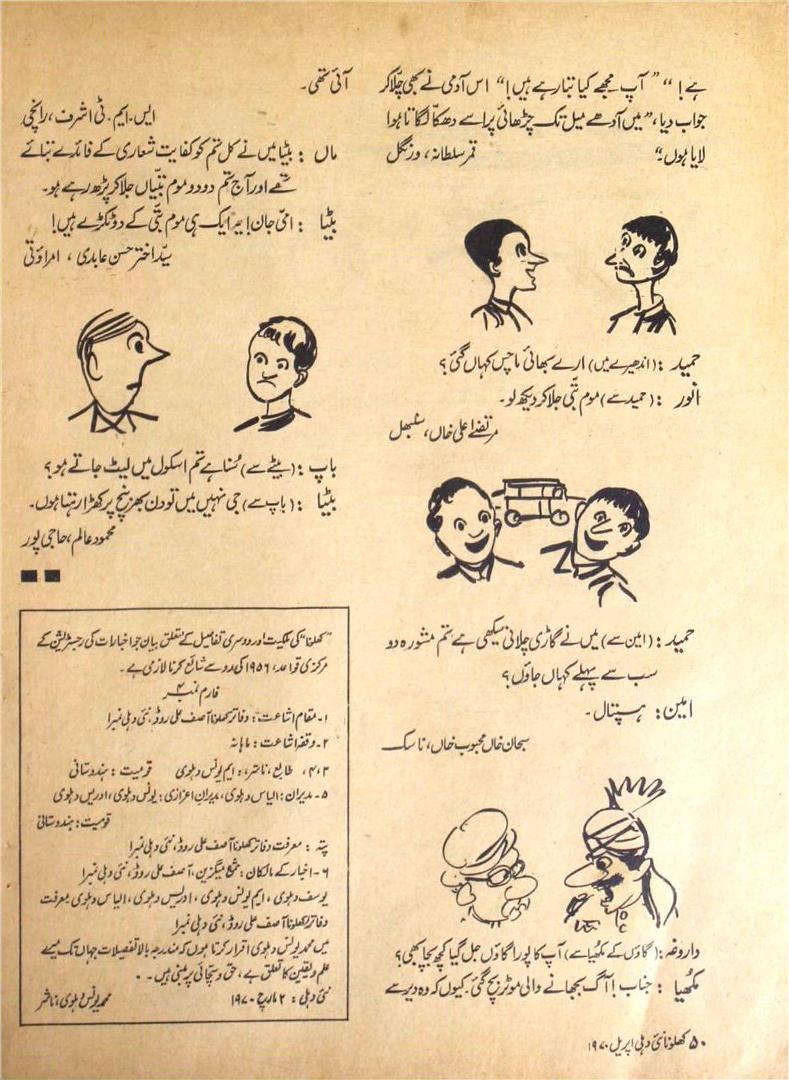 ہے! “ ” آپ مجھے کیا بتا رہے ہیں!“ اس آدمی نے بھی چلّا کر
جواب دیا، ”میں آدھے میل تک چڑھائی پر اسے دھکّا لگاتا ہوا
لایا ہوں۔“ قمر سلطانہ، ورنگل
حمید : (اندھیرے میں) ارے بھائی ماچس کہاں گئی؟
انور : (حمید سے) موم بتّی جلا کر دیکھ لو۔
مرتضےٰ علی خاں، سنبھل
حمید : (امین سے) میں نے گاڑی چلانی سیکھی ہے تم مشورہ دو
سب سے پہلے کہاں جاؤں؟
امین : ہسپتال۔
سبحان خاں محبوب خاں، ناسک
داروغہ : (گاؤں کے مکھیا سے) آپ کا پورا گاؤں جل گیا کچھ بچا بھی؟
مکھیا : جناب! آگ بجھانے والی موٹر بچ گئی۔ کیوں کہ وہ دیر سے
آئی تھی۔
ایس۔ ایم۔ ٹی اشرف، رانچی
ماں : بیٹا میں نے کل تم کو کفایت شعاری کے فائدے بتائے
تھے اور آج تم دو دو موم بتّیاں جلا کر پڑھ رہے ہو۔
بیٹا : امّی جان! یہ ایک ہی موم بتّی کے دو ٹکڑے ہیں!
سیّد اختر حسن عابدی، امراؤتی
باپ : (بیٹے سے) سُنا ہے تم اسکول میں لیٹ جاتے ہو؟
بیٹا : (باپ سے) جی نہیں میں تو دن بھر بنچ پر کھڑا رہتا ہوں۔
محمود عالم، حاجی پور
”کھلونا“ کی ملکیت اور دوسری تفاصیل کے متعلق بیان جو اخبارات کی رجسٹریشن کے
مرکزی قواعد، ۱۹۵۶ کی رو سے شائع کرنا لازمی ہے۔
فارم نمبر ۴
۱۔ مقام اشاعت : دفاتر کھلونا آصف علی روڈ، نئی دہلی نمبر۱
۲۔ وقفہ اشاعت : ماہانہ
۳، ۴، طابع، ناشر : ایم یونس دہلوی قومیت : ہندوستانی
۵۔ مدیران : الیاس دہلوی، مدیران اعزازی : یونس دہلوی، ادریس دہلوی
قومیت : ہندوستانی
پتہ : معرفت دفاتر کھلونا آصف علی روڈ، نئی دہلی نمبر۱
۶۔ اخبار کے مالکان : شمع میگزین، آصف علی روڈ، نئی دہلی نمبر۱
یوسف دہلوی، ایم یونس دہلوی، ادریس دہلوی، الیاس دہلوی معرفت
دفاتر کھلونا آصف علی روڈ، نئی دہلی نمبر۱
میں محمد یونس دہلوی اقرار کرتا ہوں کہ مندرجہ بالا تفصیلات جہاں تک میرے
علم و یقین کا تعلق ہے، حق و سچائی پر مبنی ہیں۔
نئی دہلی : ۲ مارچ ۱۹۷۰ محمد یونس دہلوی، ناشر
۵۰ کھلونا نئی دہلی اپریل ۱۹۷۰